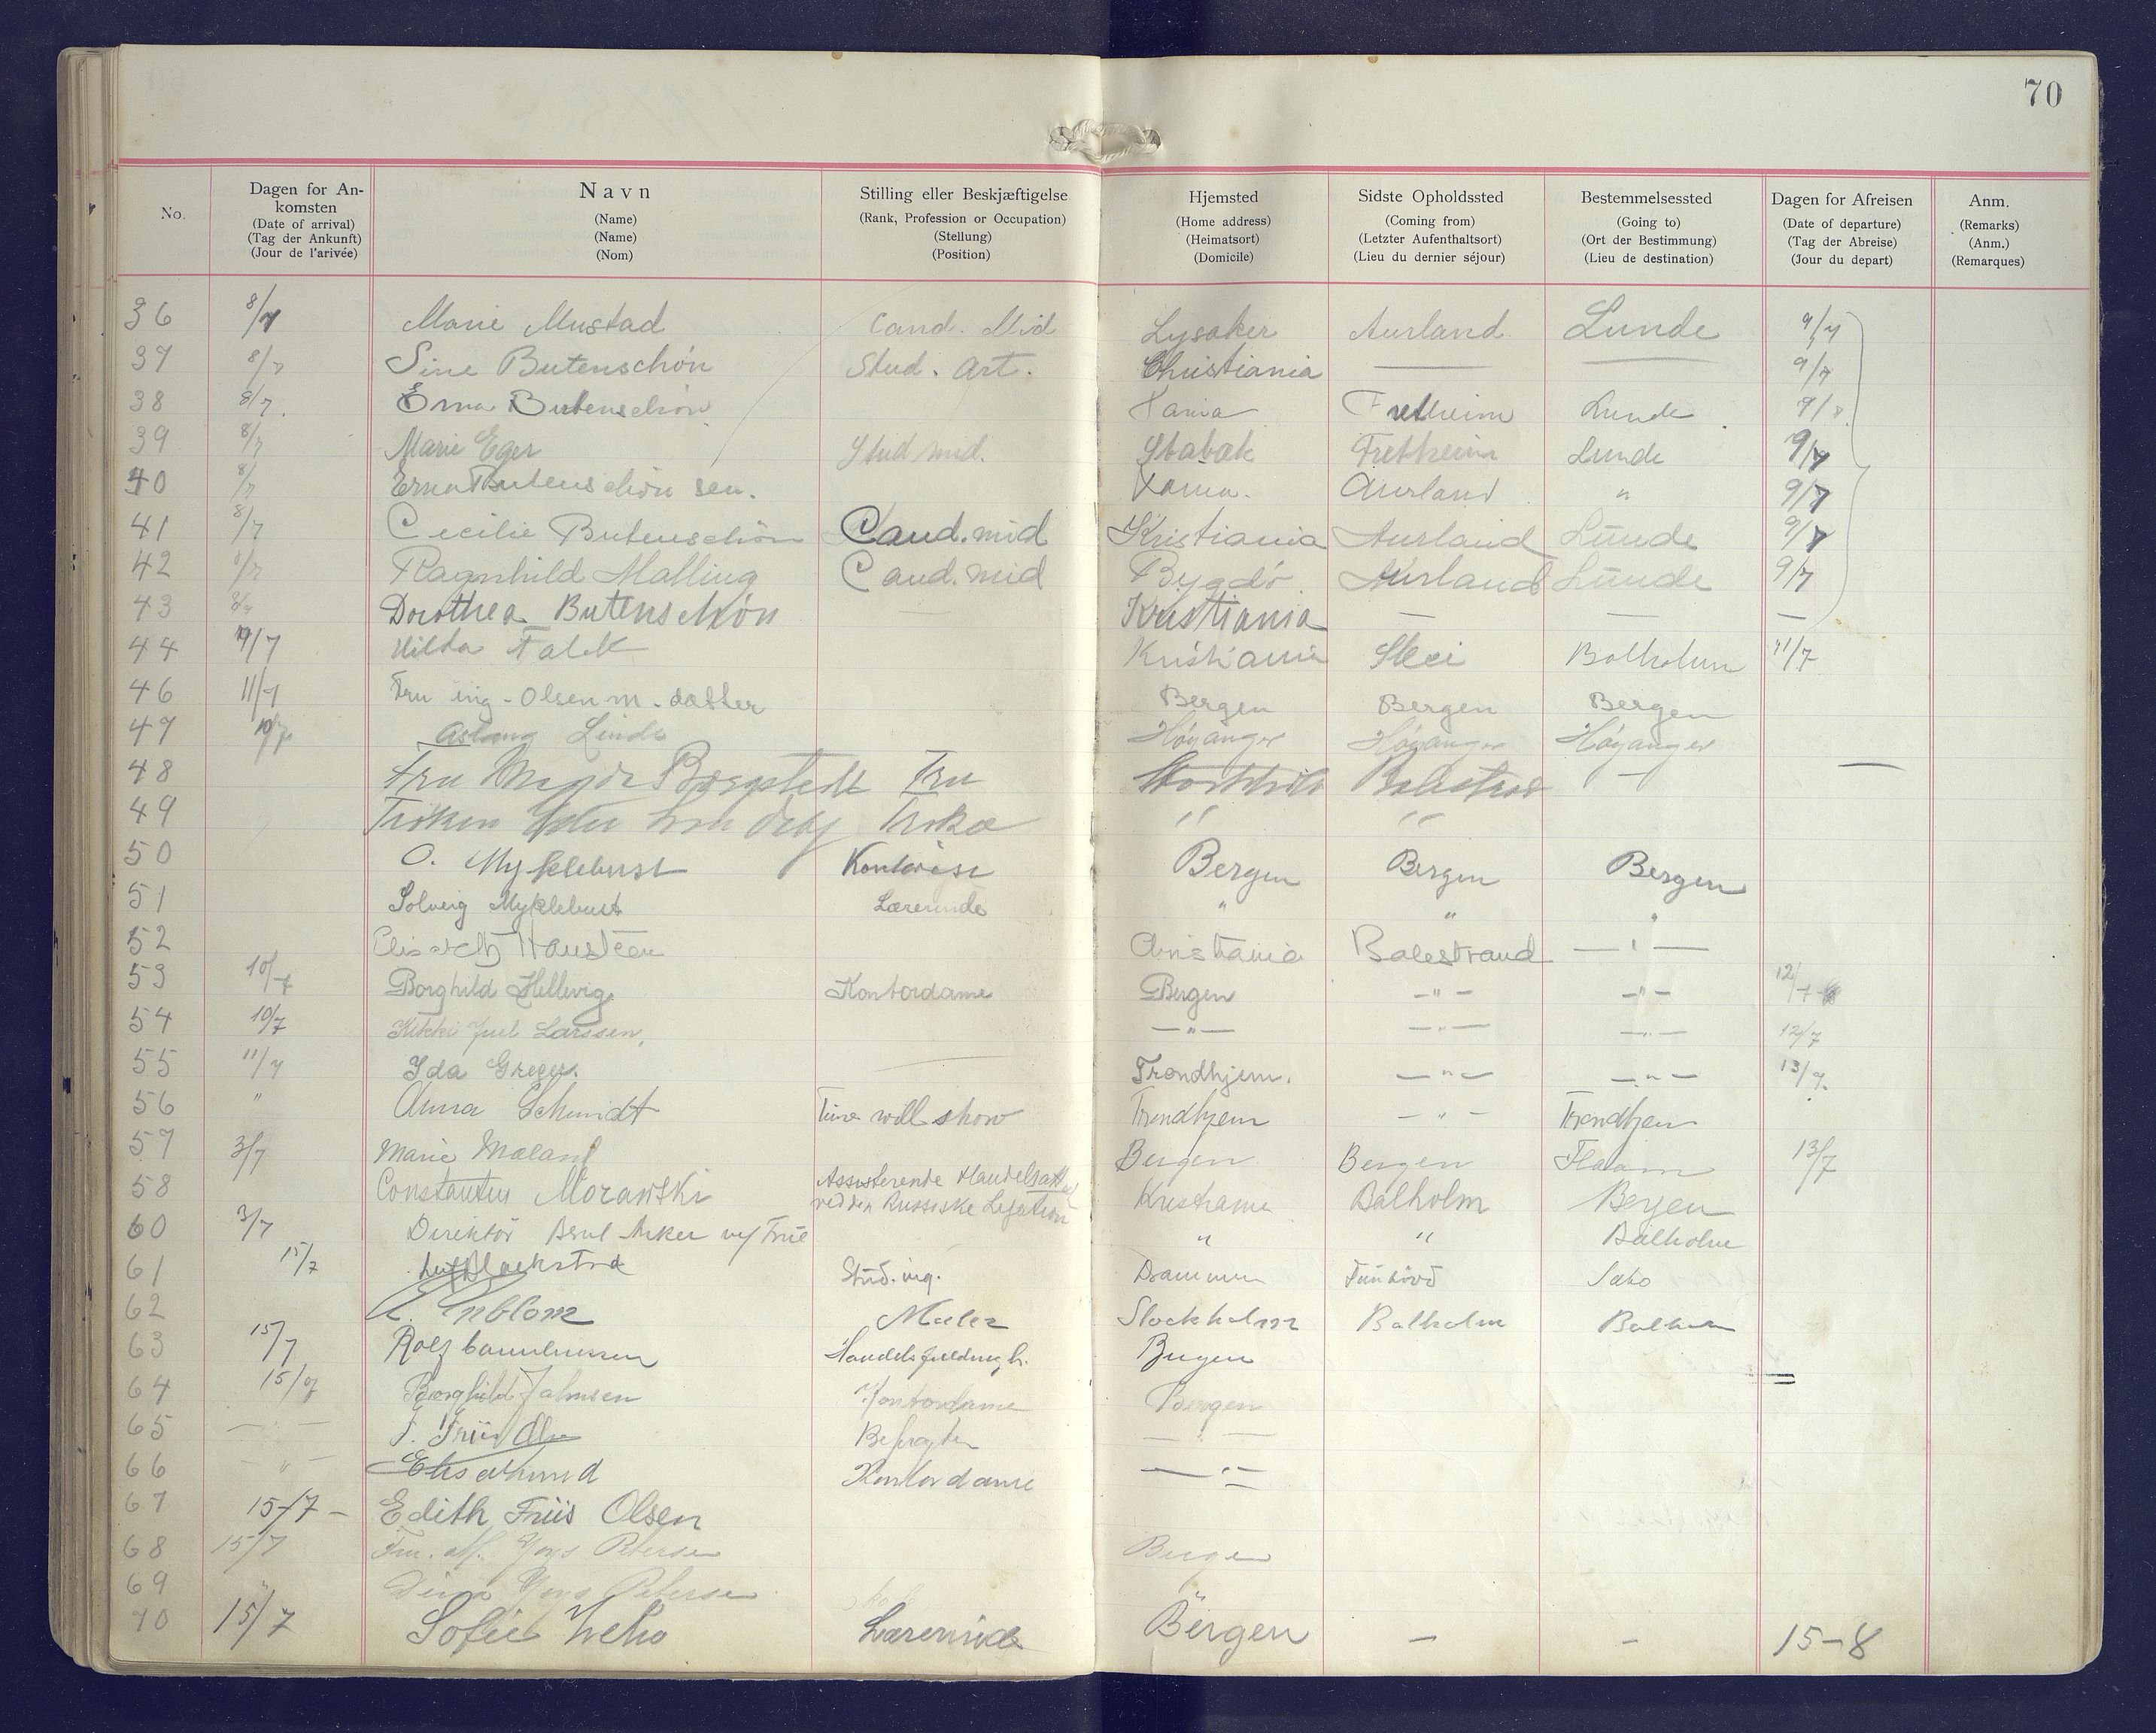 70
No. Dagen for An-komsten (Date of arrival) (Tag der Ankunft) (Jour de l'arivée) Navn (Name) (Name) (Nom) Stilling eller Beskjæftigelse (Rank, Profession or Occupation) (Stellung) (Position) Hjemsted (Home address) (Heimatsort) (Domicile) Sidste Opholdssted (Coming from) (Letzter Aufenthaltsort) (Lieu du dernier séjour) Bestemmelsessted (Going to) (Ort der Bestimmung) (Lieu de destination) Dagen for Afreisen (Date of departure) (Tag der Abreise) (Jour du depart) Anm. (Remarks) (Anm.) (Remarques)
36 8/7 Marie Mustad Cand. Mid Lysaker Aurland Lunde 9/7
37 8/7 Sine Butenschön Stud. Art. Christiania — — 9/7
38 8/7. Erna Butenschön Xania Fretheim Lunde. 9/7
39 8/7 Marie Eger Stud mid. Stabæk Fretheim Lunde 9/7
40 8/7 Erna Butenschön sen. Xania. Aurland " 9/7
41 8/7 Cecilie Butenschön Cand. mid Kristiania Aurland Lunde 9/7
42 8/7 Ragnhild Malling Cand. mid Bygdö Aurland Lunde 9/7
43 8/7 Dorothea Butenschön Kristiania — — —
44 9/7 Hilda Falck Kristiania Skei Balholm 11/7
46 11/7 Fru ing - Olsen m. datter Bergen Bergen Bergen
47 10/7 Aslaug Linde Höyanger Höyanger Höyanger
48 Fru Major Fru —
49 " "
50 O. Myklebust Bergen Bergen Bergen
51 Solveig Myklebust Lærerinde " " "
52 Elisabeth Hansteen Christiania Balestrand — " —
53 10/7 Borghild Hellevig Kontordame Bergen — " — — " — 12/7
54 10/7 Kikki Juel Larssen. — " — — " — — " — 12/7
55 11/7 Ida Greger. Trondhjem. — " — — " — 13/7.
56 " Anna Schmidt Time will show Trondhjem — " — Trondhjem
57 3/7 Marie Mæland Bergen Bergen Flaam 13/7
58 Constantin Morawski Assisterende Handels
ved den Russiske Legation Kristiania Balholm Bergen
60 3/7 Direktör Anker m/ Frue " " Balholm
61 15/7 Stud. ing. Drammen
62 Enblom Maler Stockholm Balholm Balholm
63 15/7 Rolf Bergen
64 15/7 Borghild Johnsen Kontordame Bergen
65 — " — — " —
66 — " — Kontordame — " —
67 15/7 — Edith Friis Olsen
68 15/7 Fru. Petersen Bergen
69 Petersen "
70 15/7 Sofie Lærerinde Bergen — — 15-8